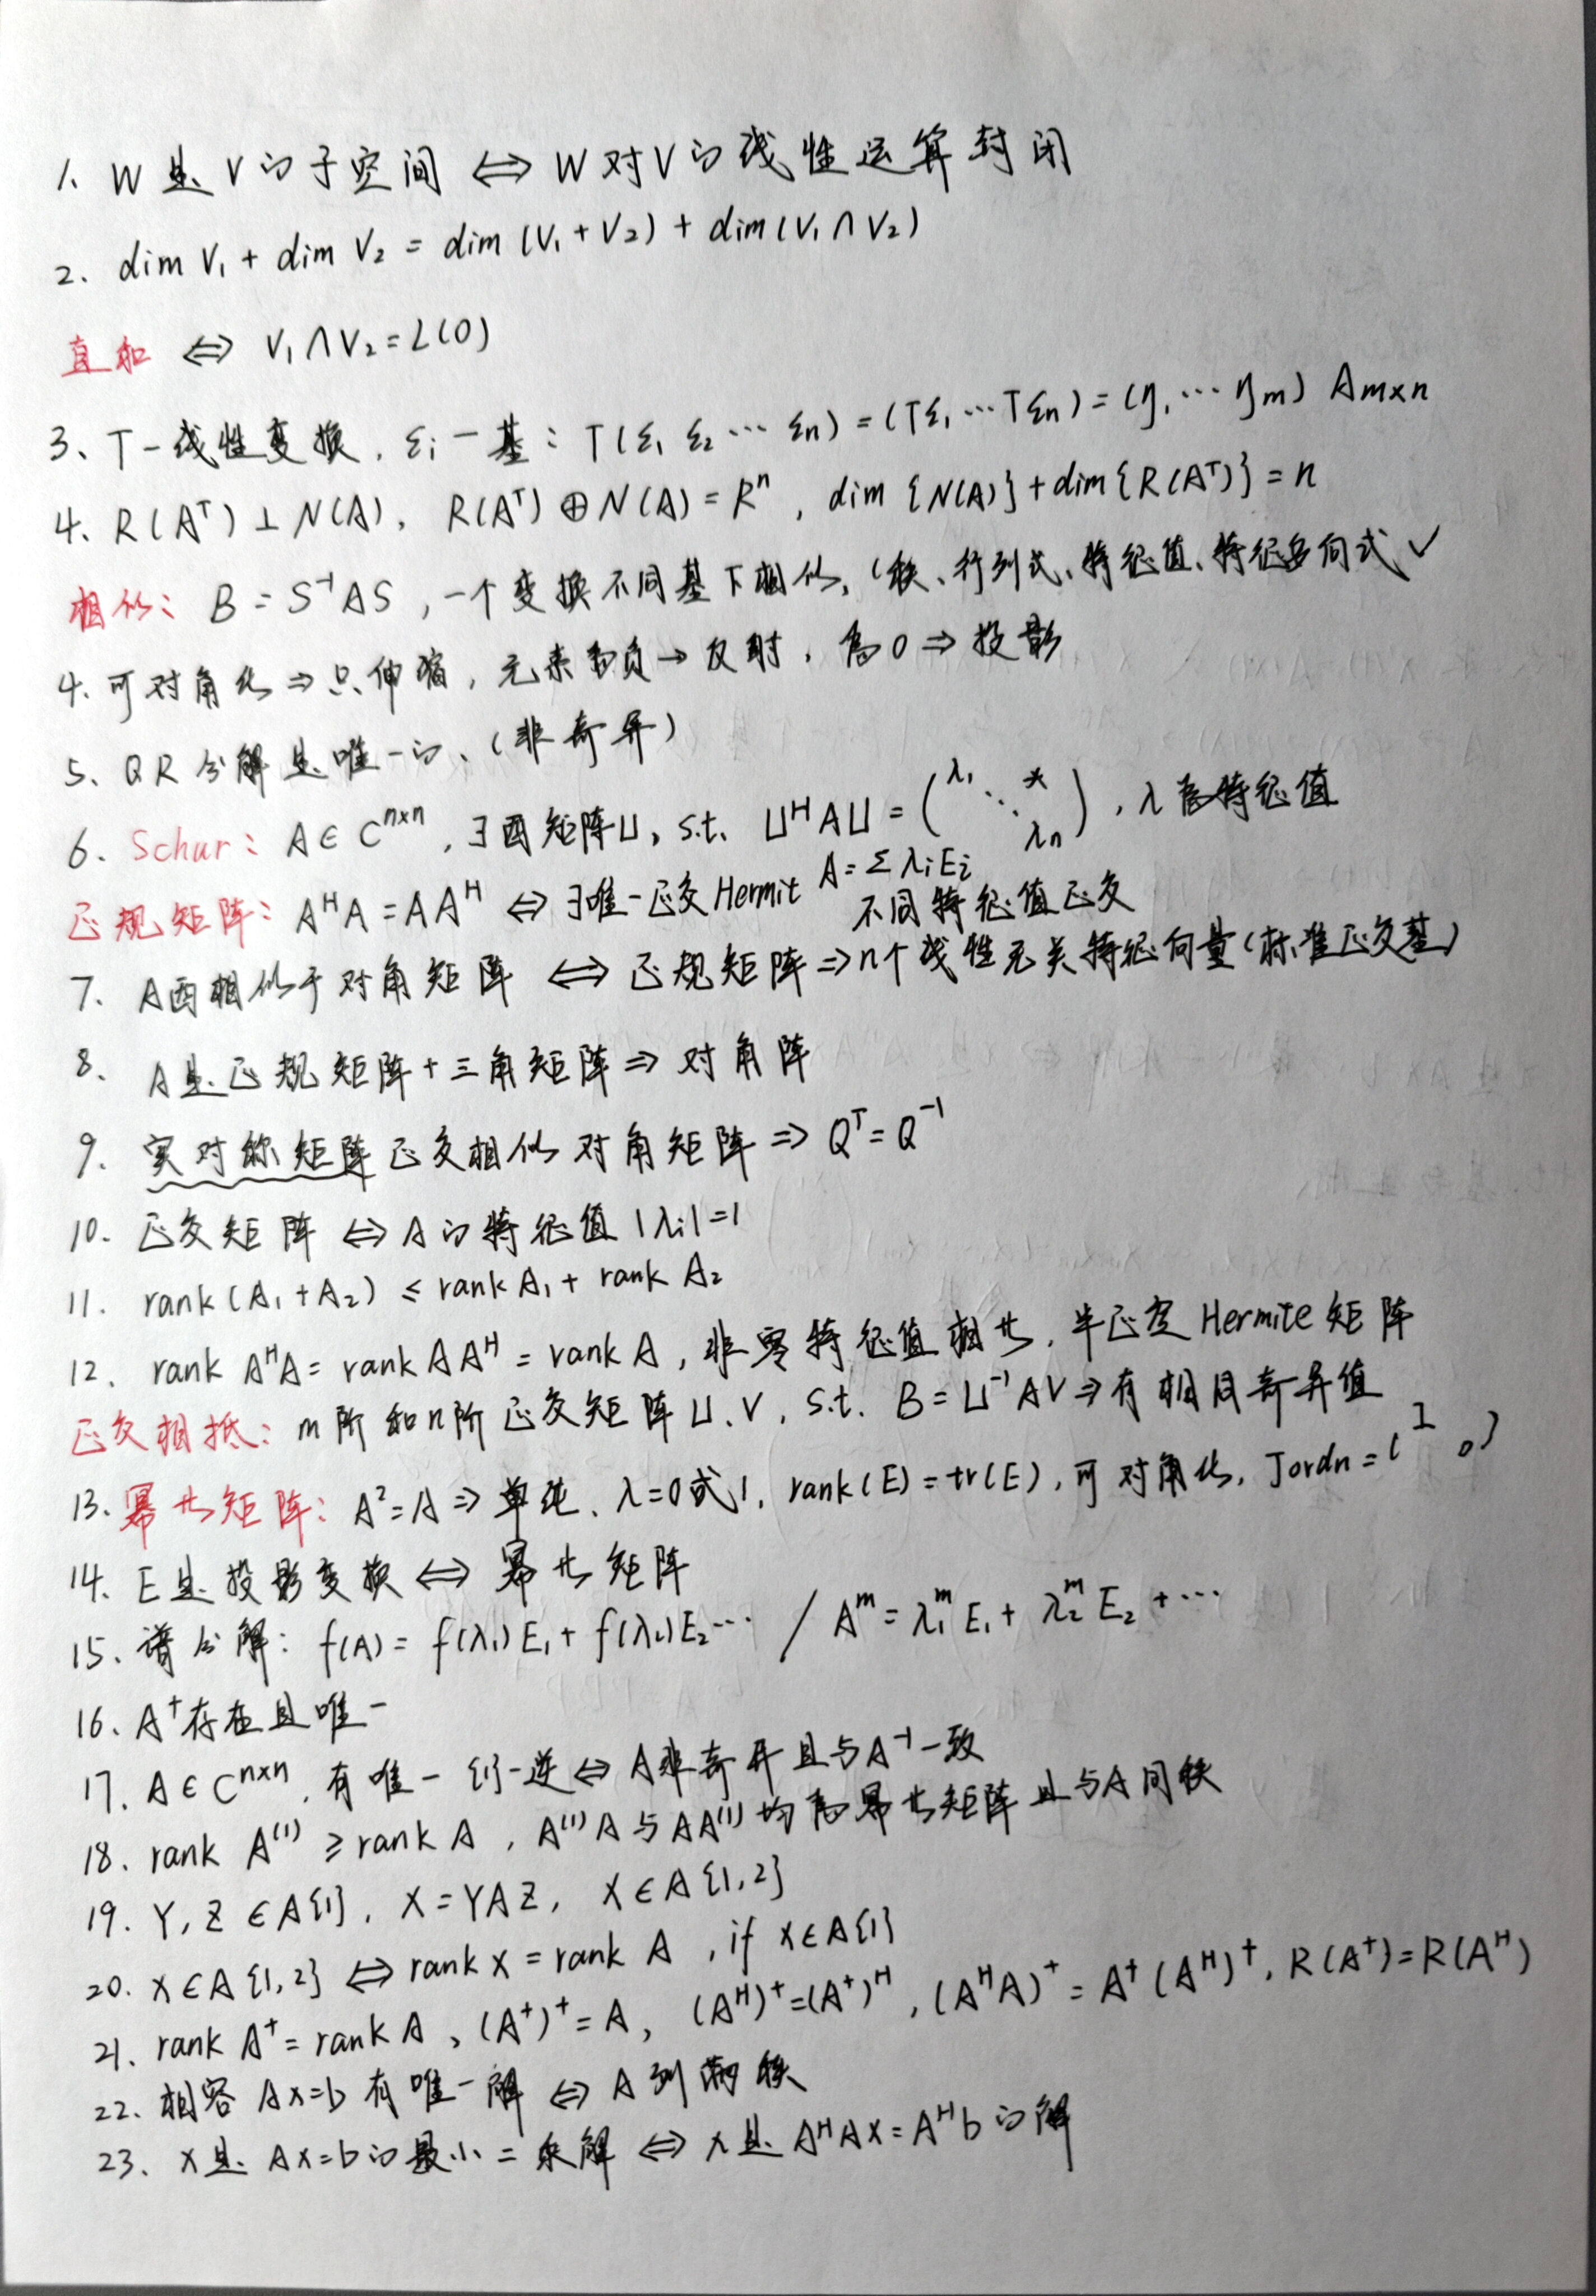 1. W是V的子空间 ⇔ W对V的线性运算封闭
2. dim V₁ + dim V₂ = dim (V₁ + V₂) + dim (V₁ ∩ V₂)
直和 ⇔ V₁ ∩ V₂ = L(0)
3. T-线性变换, εᵢ-基: T(ε₁ ε₂ ⋯ εn) = (Tε₁ ⋯ Tεn) = (η₁ ⋯ ηm) Am×n
4. R(Aᵀ) ⊥ N(A), R(Aᵀ) ⊕ N(A) = Rⁿ, dim {N(A)} + dim {R(Aᵀ)} = n
相似: B = S⁻¹AS, 一个变换不同基下相似, (秩、行列式、特征值、特征多向式 ✓
4. 可对角化 ⇒ 只伸缩, 元素为负 → 反射, 为0 ⇒ 投影
5. QR分解是唯一的、(非奇异)
6. Schur: A ∈ Cⁿˣⁿ, ∃酉矩阵U, s.t. UᴴAU = (λ₁ ⋱ * λn), λ为特征值
正规矩阵: AᴴA = AAᴴ ⇔ ∃唯一正交Hermit A = Σ λᵢEᵢ
不同特征值正交
7. A酉相似于对角矩阵 ⇔ 正规矩阵 ⇒ n个线性无关特征向量(标准正交基)
8. A是正规矩阵 + 三角矩阵 ⇒ 对角阵
9. 实对称矩阵正交相似对角矩阵 ⇒ Qᵀ = Q⁻¹
10. 正交矩阵 ⇔ A的特征值 |λᵢ| = 1
11. rank (A₁ + A₂) ≤ rank A₁ + rank A₂
12. rank AᴴA = rank AAᴴ = rank A, 非零特征值相等, 半正定Hermite矩阵
正交相抵: m阶和n阶正交矩阵U、V, s.t. B = U⁻¹AV ⇒ 有相同奇异值
13. 幂等矩阵: A² = A ⇒ 单纯、λ=0或1, rank(E) = tr(E), 可对角化, Jordn = (I 0)
14. E是投影变换 ⇔ 幂等矩阵
15. 谱分解: f(A) = f(λ₁)E₁ + f(λ₂)E₂ ⋯ / Aᵐ = λ₁ᵐE₁ + λ₂ᵐE₂ + ⋯
16. A⁺存在且唯一
17. A ∈ Cⁿˣⁿ, 有唯一{1}-逆 ⇔ A非奇异且与A⁻¹一致
18. rank A⁽¹⁾ ≥ rank A, A⁽¹⁾A与AA⁽¹⁾均为幂等矩阵且与A同秩
19. Y, Z ∈ A{1}, X = YAZ, X ∈ A{1,2}
20. X ∈ A{1,2} ⇔ rank X = rank A, if X ∈ A{1}
21. rank A⁺ = rank A, (A⁺)⁺ = A, (Aᴴ)⁺ = (A⁺)ᴴ, (AᴴA)⁺ = A⁺(Aᴴ)⁺, R(A⁺) = R(Aᴴ)
22. 相容Ax=b有唯一解 ⇔ A列满秩
23. x是Ax=b的最小二乘解 ⇔ x是AᴴAx = Aᴴb的解